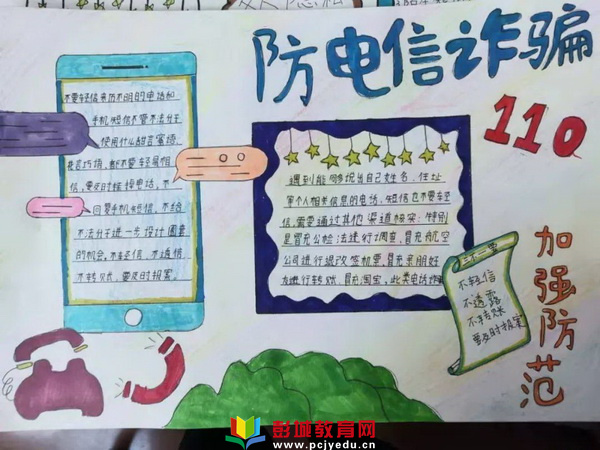 防电信诈骗
110
加强防范
不要轻信来历不明的电话和
手机短信不管不法分子
使用什么甜言蜜语、
花言巧语,都不要轻易相
信,要及时挂掉电话,不
回复手机短信,不给
不法分子进一步设计圈套
的机会。不轻信,不透露
不转账,要及时报案
遇到能够说出自己姓名、住址
等个人相关信息的电话、短信也不要轻
信,需要通过其他渠道核实,特别
是冒充公检法进行调查,冒充航空
公司进行退改签机票,冒充亲朋好
友进行转账,冒充淘宝,此类电话诈骗
三不一要
不轻信
不透露
不转账
要及时报案
彭城教育网
www.pcjyedu.cn